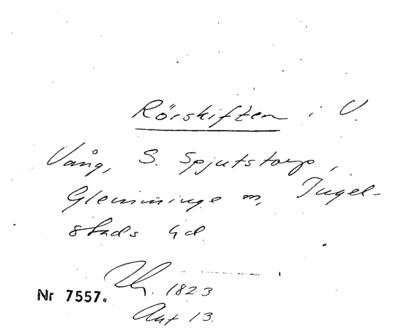 Rörskiften i V.
Vång, S. Spjutstorp,
Glemminge m, Ingel-
stads hd.
1823
Nr 7557.
Akt 13.